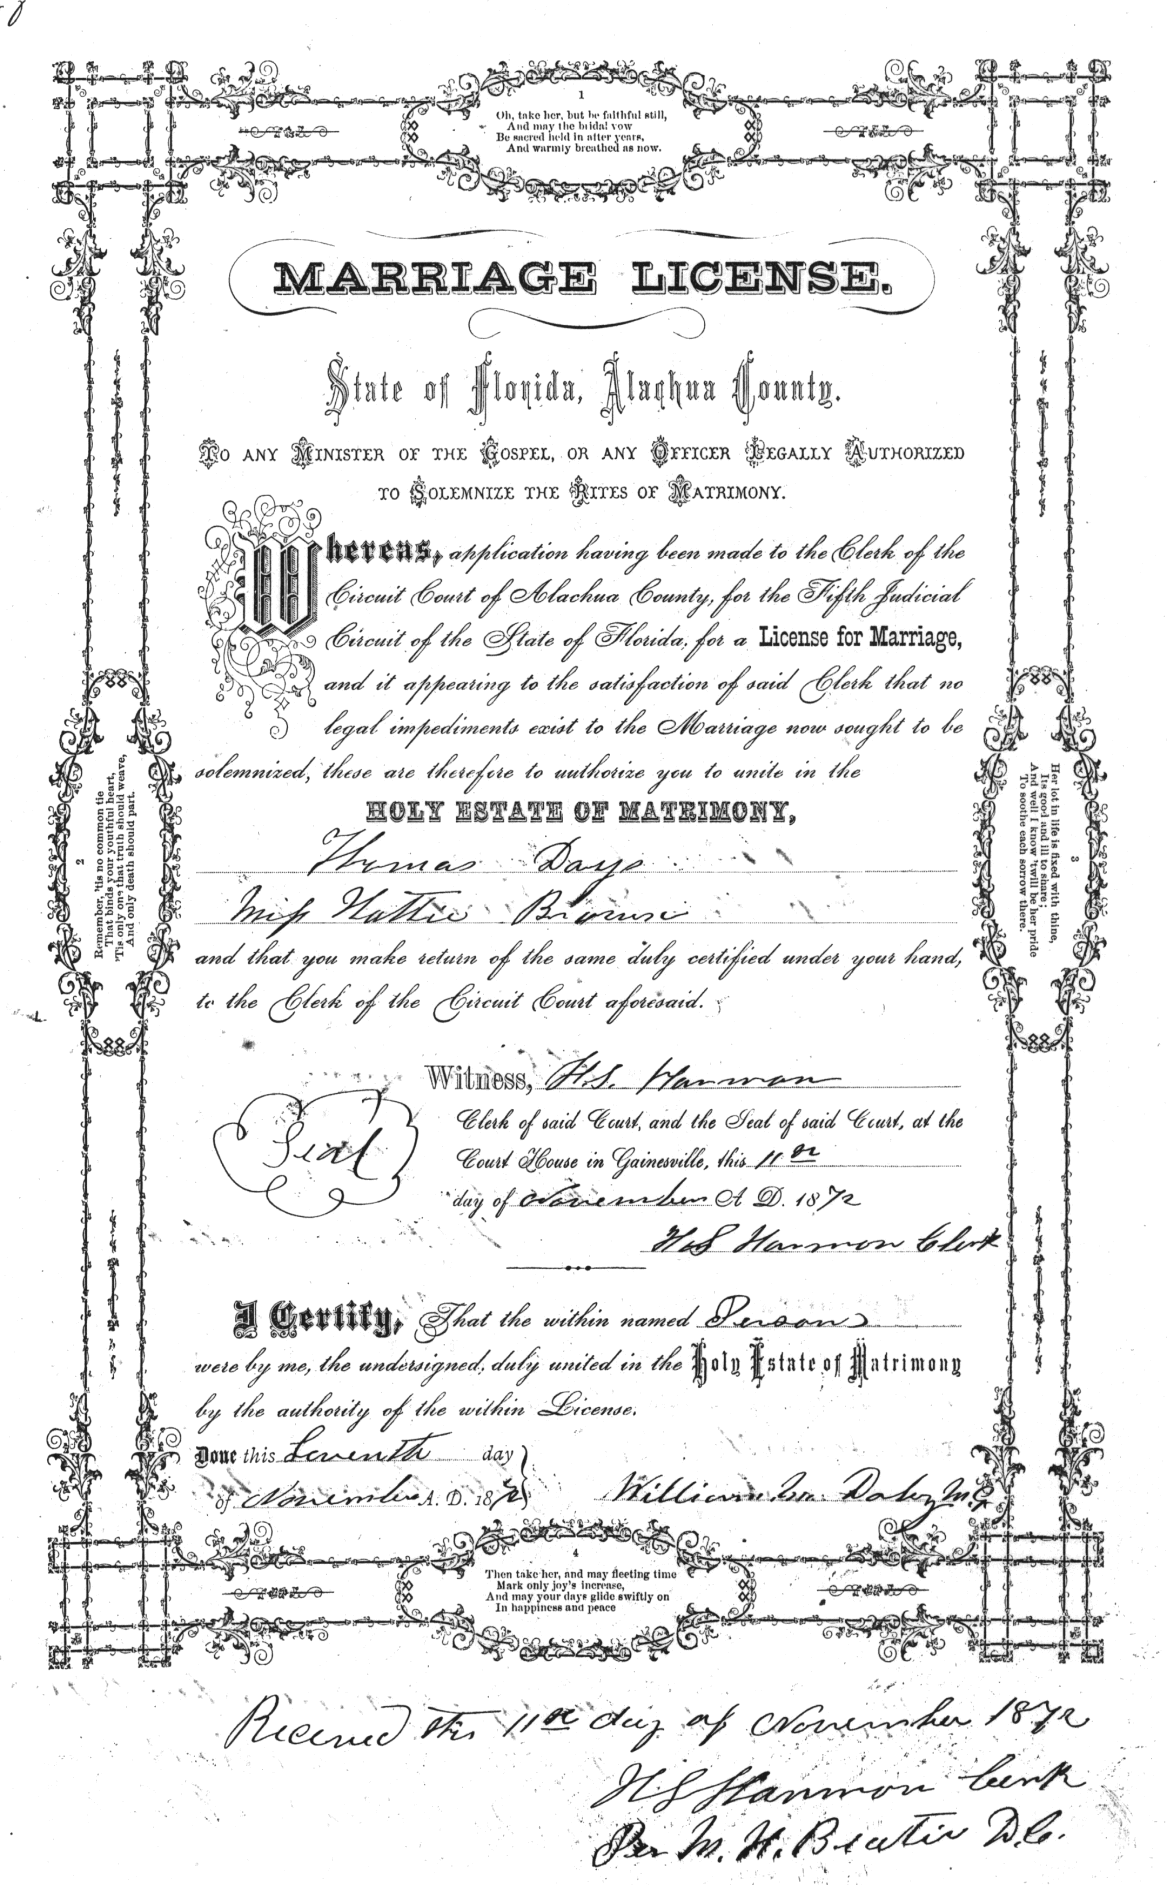 1
Oh, take her, but be faithful still,
And may the bridal vow
Be sacred held in after years,
And warmly breathed as now.
MARRIAGE LICENSE.
State of Florida, Alachua County.
TO ANY MINISTER OF THE GOSPEL, OR ANY OFFICER LEGALLY AUTHORIZED
TO SOLEMNIZE THE RITES OF MATRIMONY.
Whereas, application having been made to the Clerk of the
Circuit Court of Alachua County, for the Fifth Judicial
Circuit of the State of Florida, for a License for Marriage,
and it appearing to the satisfaction of said Clerk that no
legal impediments exist to the Marriage now sought to be
solemnized, these are therefore to authorize you to unite in the
HOLY ESTATE OF MATRIMONY,
Thomas Days
Miss Hattie Brown
and that you make return of the same duly certified under your hand,
to the Clerk of the Circuit Court aforesaid.
2
Remember, 'tis no common tie
That binds your youthful heart,
'Tis only one that truth should weave,
And only death should part.
3
Her lot in life is fixed with thine,
Its good and ill to share;
And well I know 'twill be her pride
To soothe each sorrow there.
Witness, H.S. Harmon
Seal
Clerk of said Court, and the Seal of said Court, at the
Court House in Gainesville, this 11th
day of November A. D. 1872
H S Harmon Clerk
I Certify, That the within named Persons
were by me, the undersigned, duly united in the Holy Estate of Matrimony
by the authority of the within License.
Done this Seventh day
of November A. D. 1872
William Daley M.G
4
Then take her, and may fleeting time
Mark only joy's increase,
And may your days glide swiftly on
In happiness and peace
Received this 11th day of November 1872
H S Harmon Clerk
Per M. H. Beatie D.C.